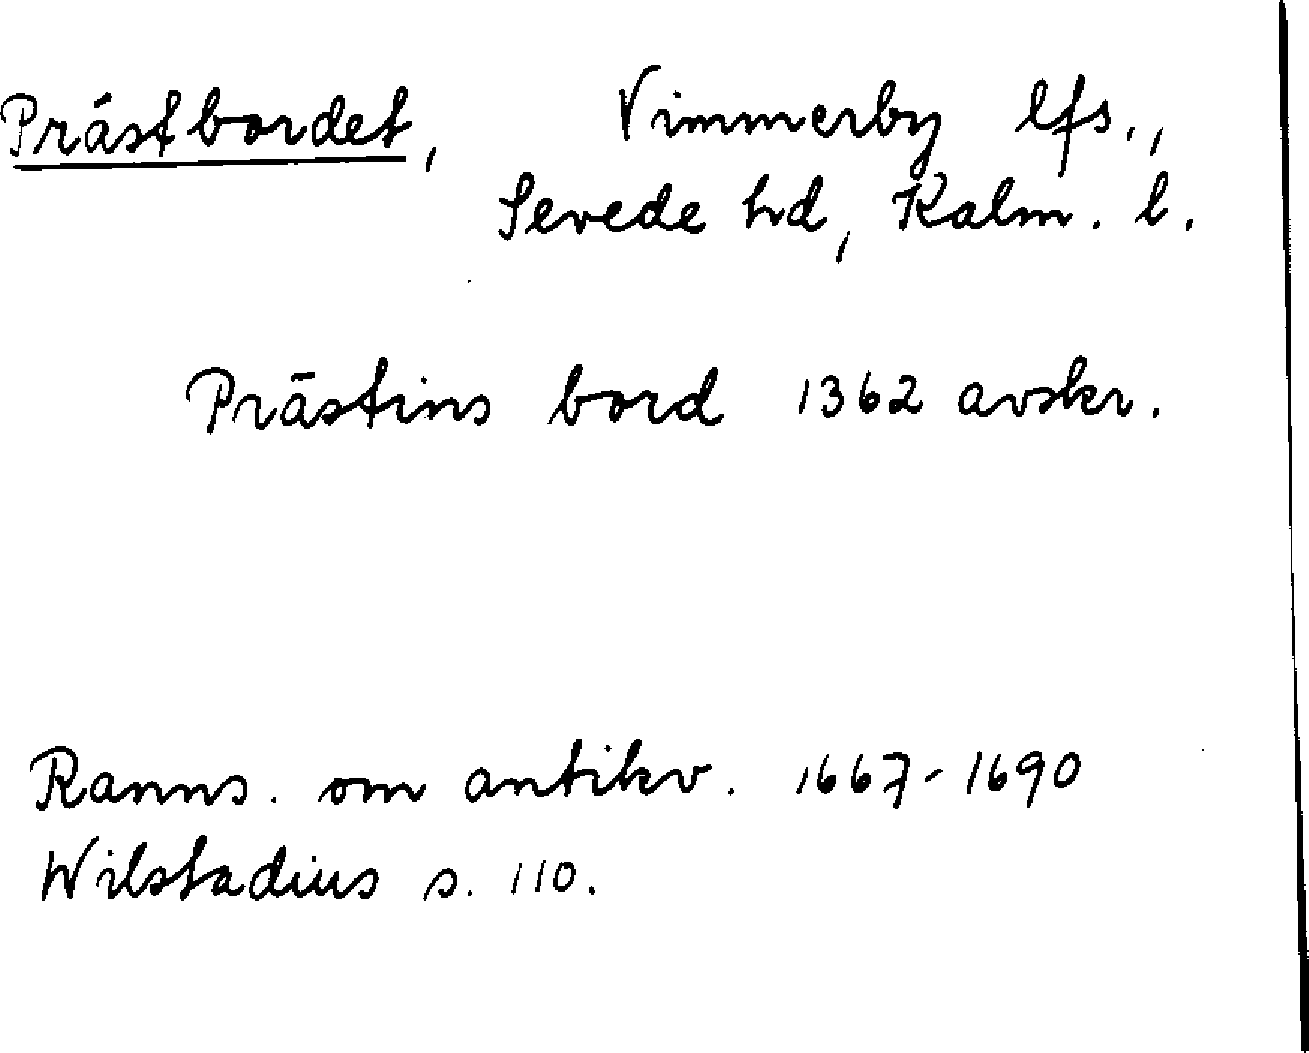 Prästbordet, Vimmerby lfs.,
Sevede hd, Kalm. l.
Prästins bord 1362 avskr.
Ranns. om antikv. 1667-1690
Wilstadius s. 110.